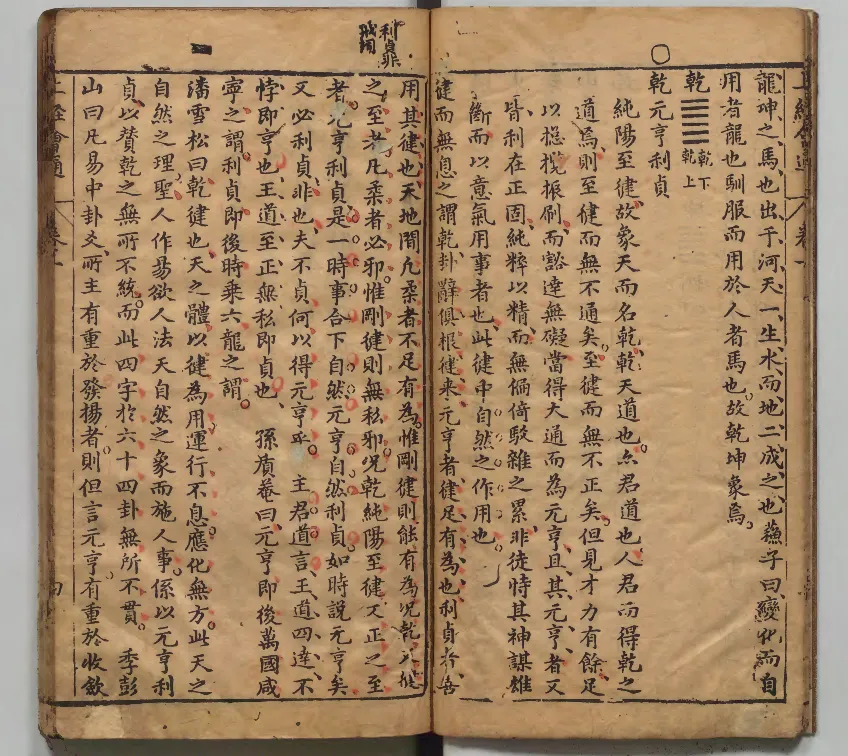 龍坤之馬也出于河天一生水而地二成之也蘓子曰變化而自
用者龍也馴服而用於人者馬也故乾坤象焉
乾
乾下
乾上
乾元亨利貞
純陽至健故象天而名乾乾天道也亦君道也人君而得乾之
道焉則至健而無不通矣至健而無不正矣但見才力有餘足
以揔攬振刷而豁達無礙當得大通而為元亨且其元亨者又
皆利在正固純粹以精而無偏倚駁雜之累非徒恃其神謀雄
斷而以意氣用事者也此健中自然之作用也
健而無息之謂乾卦辭俱根健来元亨者健足有為也利貞者
利貞非
用其健也天地間凡柔者不足有為惟剛健則能有為况乾
之至者凡柔者必邪惟剛健則無私邪况乾純陽至健又正之至
者元亨利貞是一時事合下自然元亨自然利貞如時說元亨矣
又必利貞非也夫不貞何以得元亨乎 主君道言王道四達不
悖即亨也王道至正無私即貞也 孫質菴曰元亨即後萬國咸
寧之謂利貞即後時乘六龍之謂
潘雪松曰乾健也天之體以健為用運行不息應化無方此天之
自然之理聖人作易欲人法天自然之象而施人事係以元亨利
貞以贊乾之無所不統而此四字於六十四卦無所不貫 季彭
山曰凡易中卦爻所主有重於發揚者則但言元亨有重於收斂